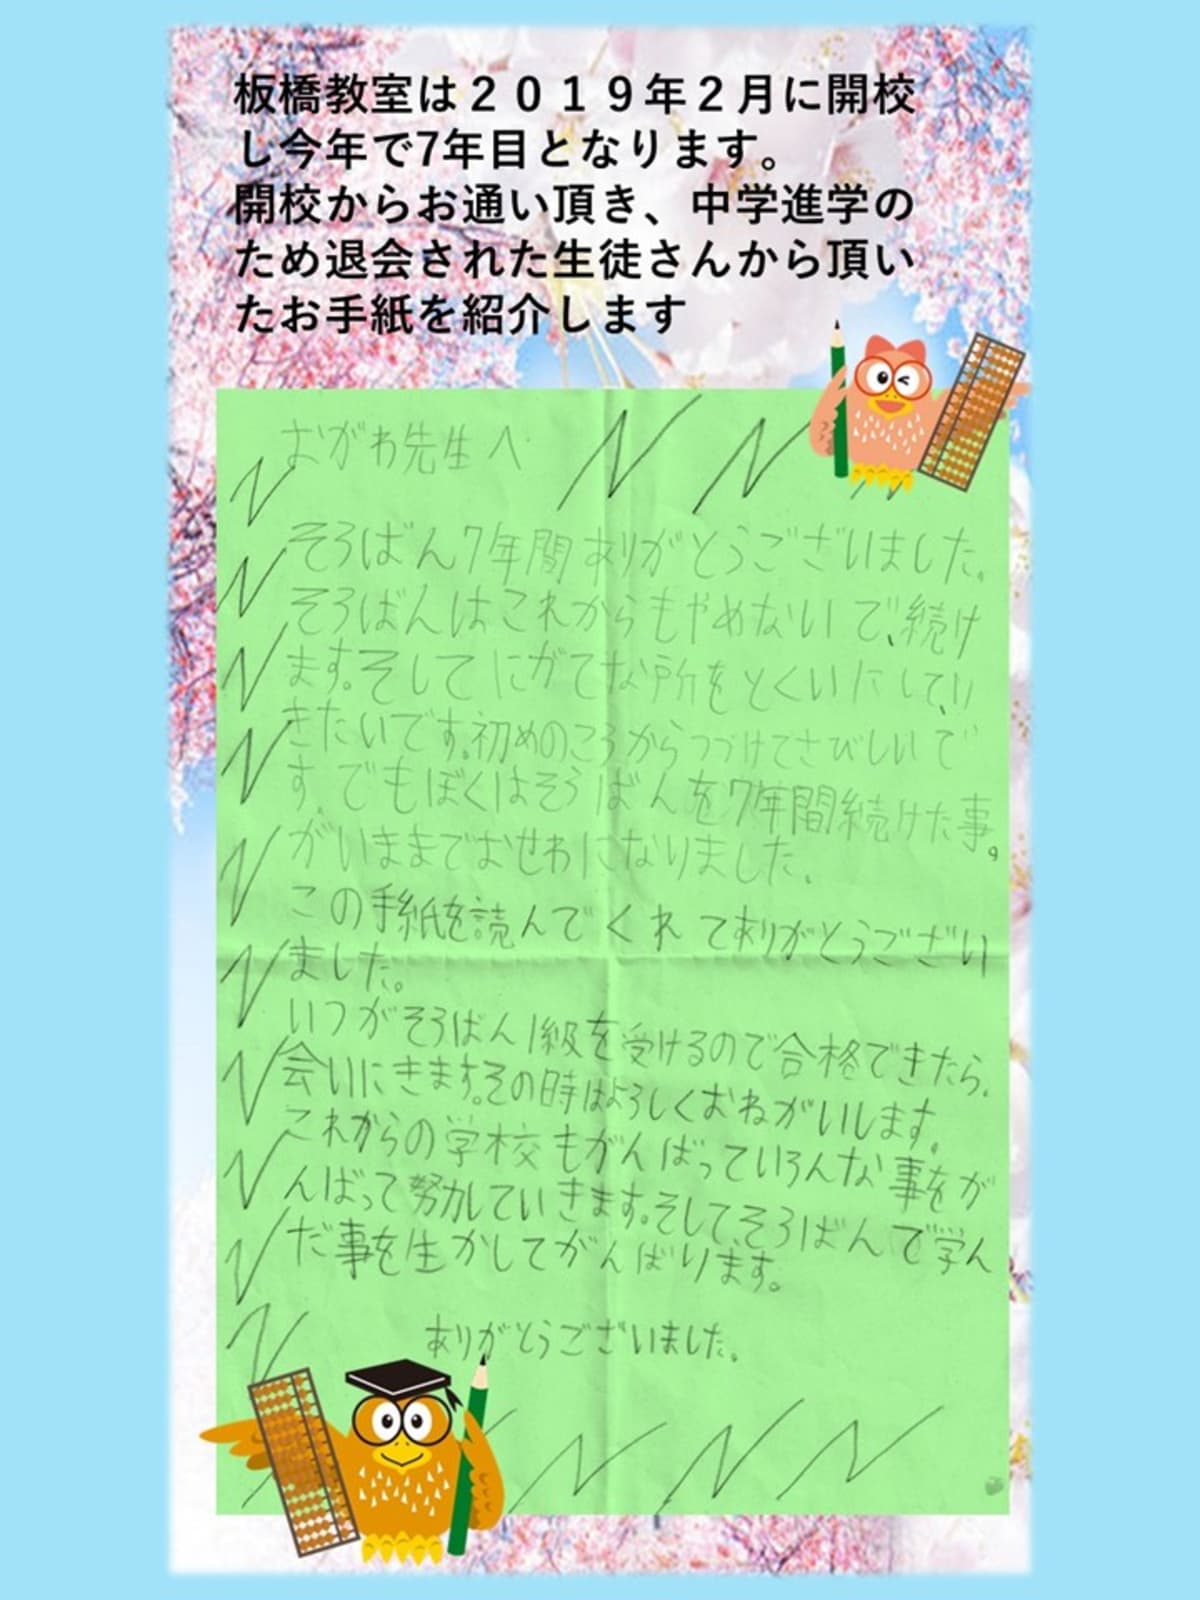 板橋教室は２０１９年２月に開校
し今年で7年目となります。
開校からお通い頂き、中学進学の
ため退会された生徒さんから頂い
たお手紙を紹介します
おがわ先生へ
そろばん7年間ありがとうございました。
そろばんはこれからもやめないで、続け
ます。そしてにがてな所をとくいにしてい
きたいです。初めのころからつづけてさびしいで
す。でもぼくはそろばんを7年間続けた事。
がいままでおせわになりました。
この手紙を読んでくれてありがとうござい
ました。
いつがそろばん1級を受けるので合格できたら、
会いにきます。その時はよろしくおねがいします。
これからの学校もがんばっていろんな事をが
んばって努力していきます。そして、そろばんで学ん
だ事を生かしてがんばります。
ありがとうございました。